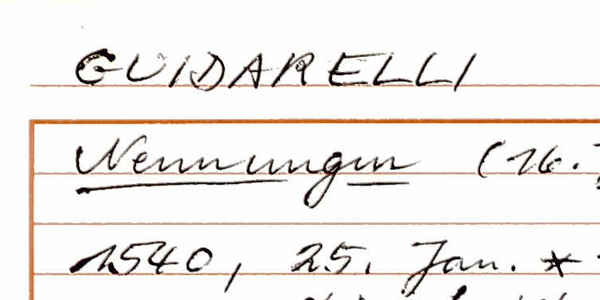 GUIDARELLI
Nennungen (16.
1540, 25. Jan. *